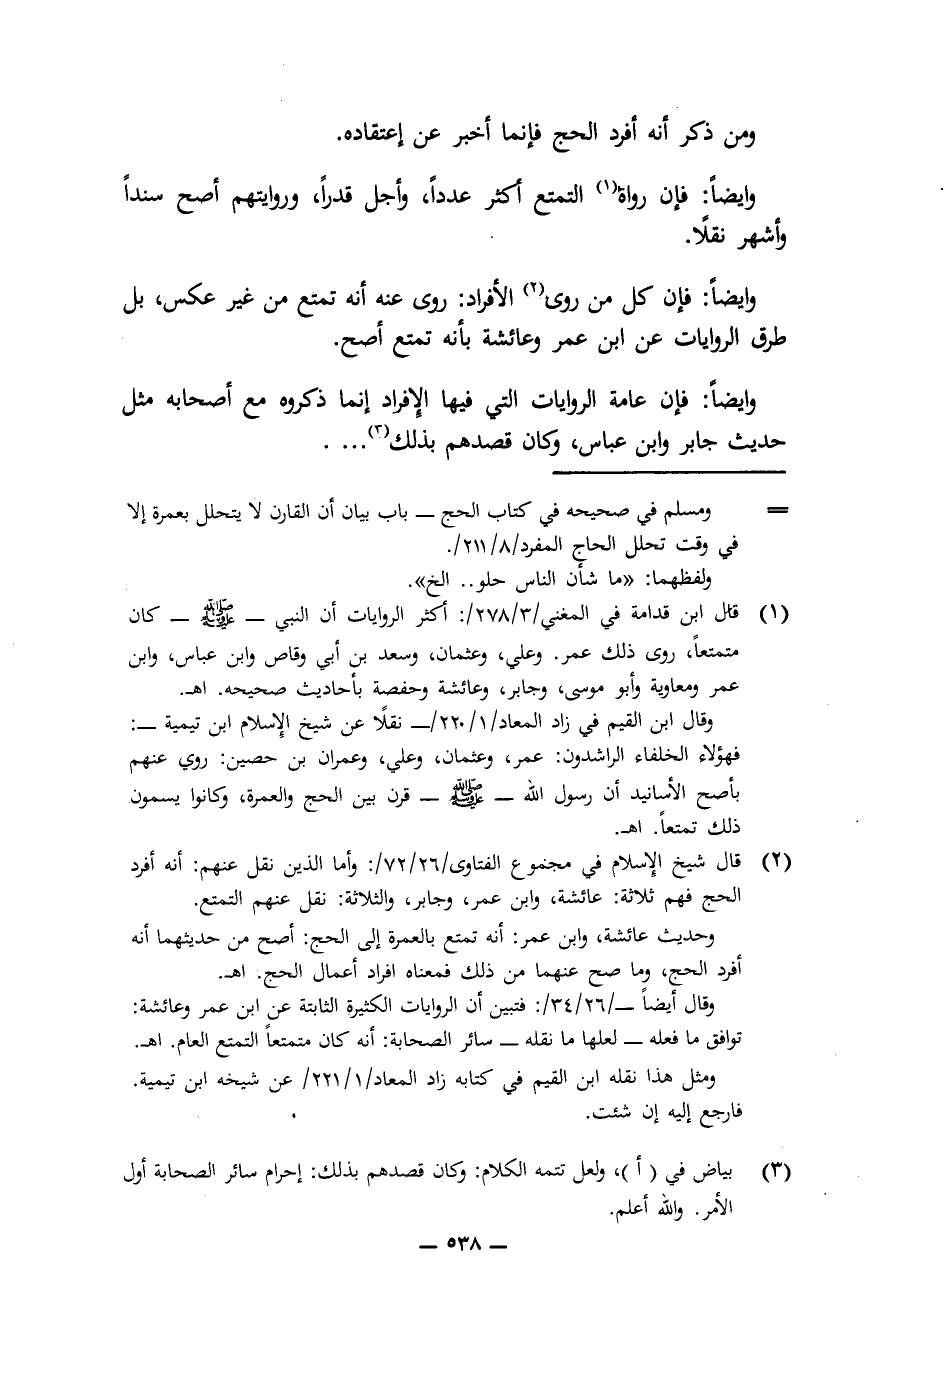 ومن ذكر أنه أفرد الحج فإنما أخبر عن إعتقاده.
وايضاً: فإن رواة(١) التمتع أكثر عدداً، وأجل قدراً، وروايتهم أصح سنداً
وأشهر نقلًا.
وايضاً: فإن كل من روى(٢) الأفراد: روى عنه أنه تمتع من غير عكس، بل
طرق الروايات عن ابن عمر وعائشة بأنه تمتع أصح.
وايضاً: فإن عامة الروايات التي فيها الإفراد إنما ذكروه مع أصحابه مثل
حديث جابر وابن عباس، وكان قصدهم بذلك(٣)... .
= ومسلم في صحيحه في كتاب الحج ـ باب بيان أن القارن لا يتحلل بعمرة إلا
في وقت تحلل الحاج المفرد/٢١١/٨/.
ولفظهما: «ما شأن الناس حلو.. الخ».
(١) قال ابن قدامة في المغني/٢٧٨/٣/: أكثر الروايات أن النبي ـ ﷺ ـ كان
متمتعاً، روى ذلك عمر. وعلي، وعثمان، وسعد بن أبي وقاص وابن عباس، وابن
عمر ومعاوية وأبو موسى، وجابر، وعائشة وحفصة بأحاديث صحيحه. اهـ.
وقال ابن القيم في زاد المعاد/٢٢٠/١/ـ نقلًا عن شيخ الإسلام ابن تيمية ـ:
فهؤلاء الخلفاء الراشدون: عمر، وعثمان، وعلي، وعمران بن حصين: روي عنهم
بأصح الأسانيد أن رسول الله ـ ﷺ ـ قرن بين الحج والعمرة، وكانوا يسمون
ذلك تمتعاً. اهـ.
(٢) قال شيخ الإسلام في مجموع الفتاوى/٧٢/٢٦/: وأما الذين نقل عنهم: أنه أفرد
الحج فهم ثلاثة: عائشة، وابن عمر، وجابر، والثلاثة: نقل عنهم التمتع.
وحديث عائشة، وابن عمر: أنه تمتع بالعمرة إلى الحج: أصح من حديثهما أنه
أفرد الحج، وما صح عنهما من ذلك فمعناه افراد أعمال الحج. اهـ.
وقال أيضاً ـ/٣٤/٢٦/: فتبين أن الروايات الكثيرة الثابتة عن ابن عمر وعائشة:
توافق ما فعله ـ لعلها ما نقله ـ سائر الصحابة: أنه كان متمتعاً التمتع العام. اهـ.
ومثل هذا نقله ابن القيم في كتابه زاد المعاد/٢٢١/١/ عن شيخه ابن تيمية.
فارجع إليه إن شئت.
(٣) بياض في ( أ )، ولعل تتمه الكلام: وكان قصدهم بذلك: إحرام سائر الصحابة أول
الأمر. والله أعلم.
ـ ٥٣٨ ـ